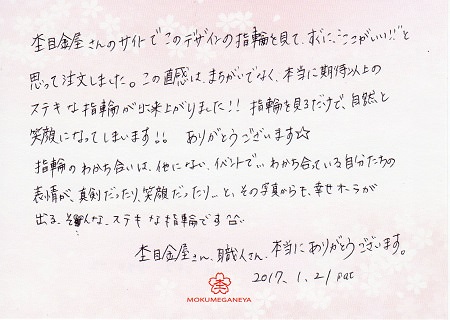 杢目金屋さんのサイトでこのデザインの指輪を見て、すぐに、"ここがいい!!"と
思って注文しました。この直感は、まちがいでなく、本当に期待以上の
ステキな指輪が出来上がりました!! 指輪を見るだけで、自然と
笑顔になってしまいます!! ありがとうございます☆
指輪のわかち合いは、他にない、イベントで… わかち合っている自分たちの
表情が、真剣だったり、笑顔だったり…と、その写真からも、幸せオーラが
出る、そんな、ステキな指輪です
杢目金屋さん、職人さん、本当にありがとうございます。
2017. 1. 21 sat
MOKUMEGANEYA